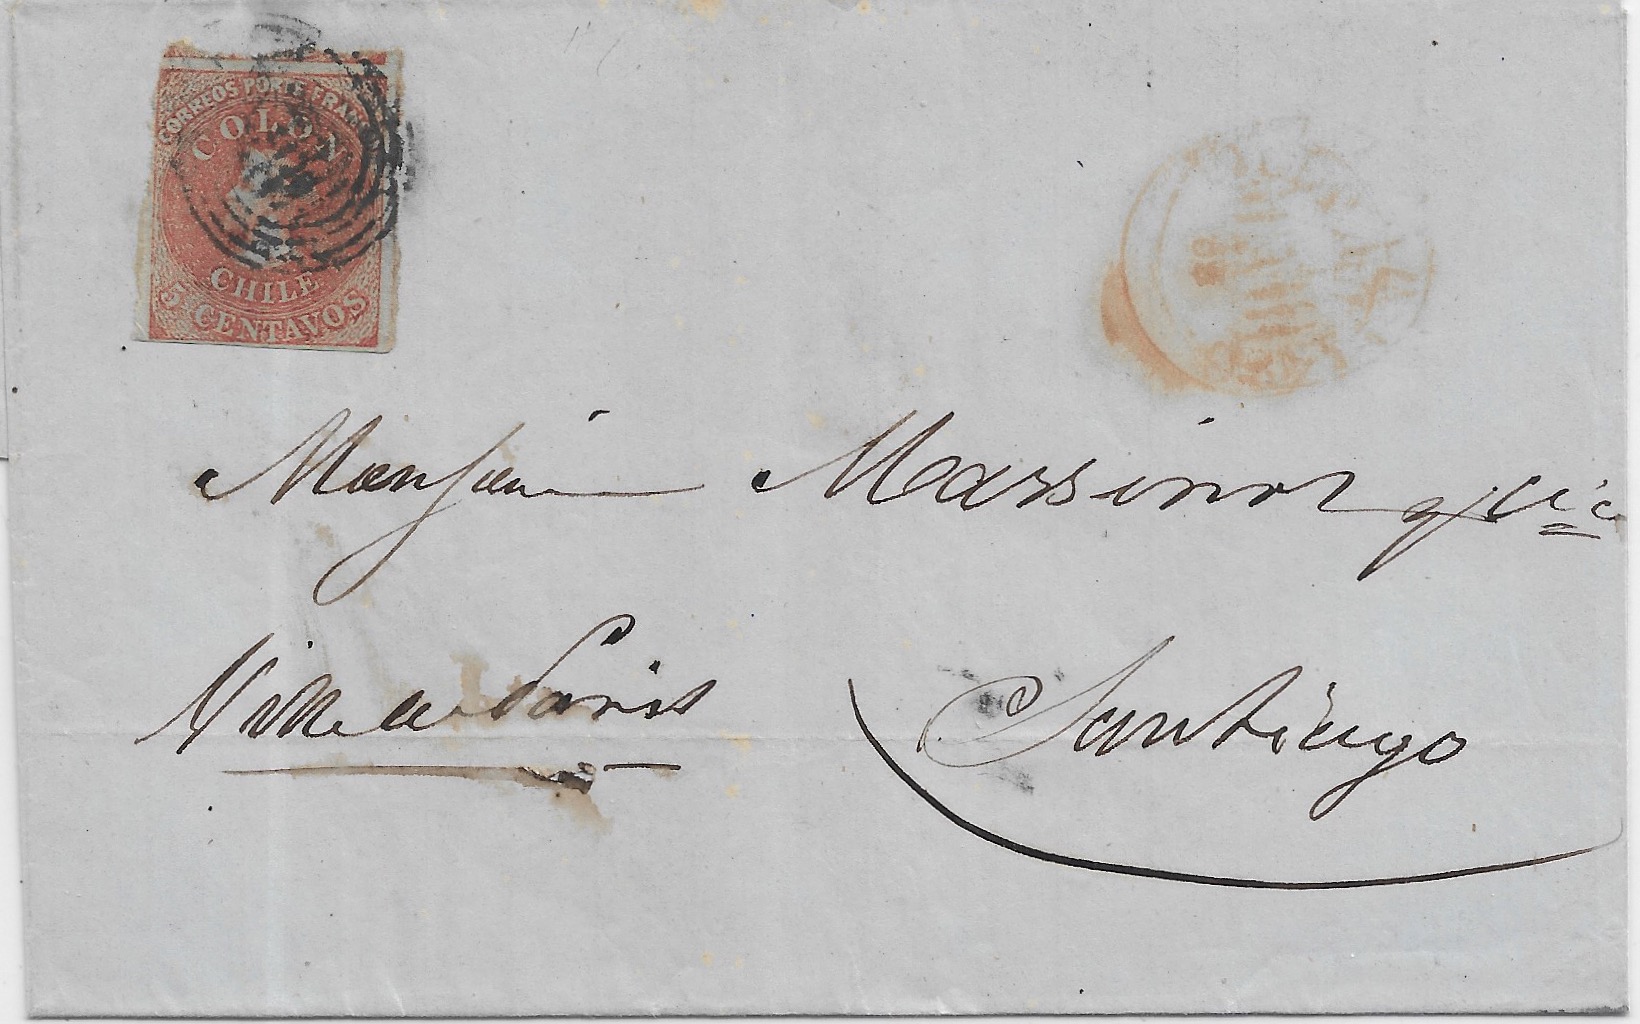 CORREOS PORTE FRANCO
COLON
CHILE
5 CENTAVOS
Monsieur Massinot y Cia
Ville de Paris
Santiago